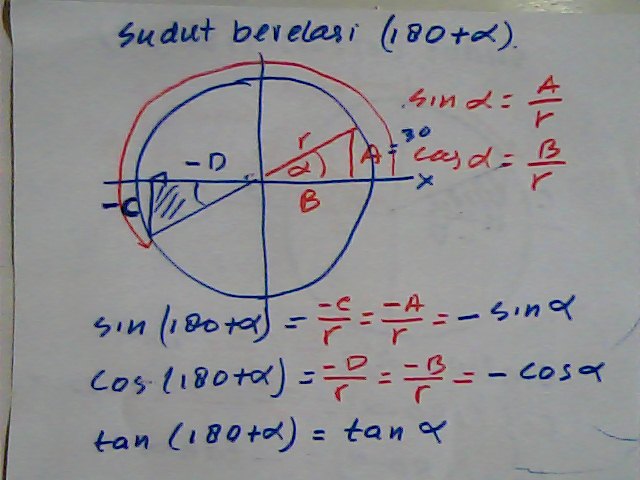 sudut berelasi (180+α).
sin α = A/r
30
cos α = B/r
r
α
A
B
x
-D
-C
sin (180+α) = -C/r = -A/r = - sin α
cos (180+α) = -D/r = -B/r = - cos α
tan (180+α) = tan α